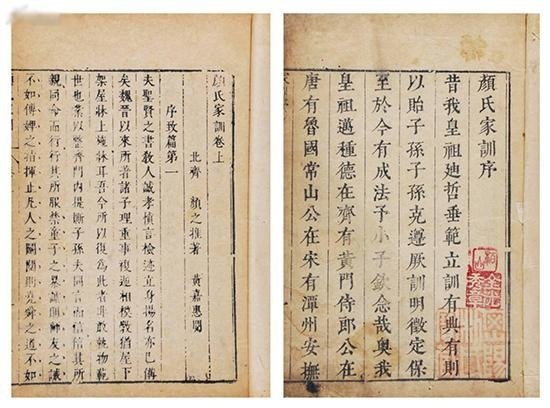 顏氏家訓序
昔我皇祖廸哲垂範立訓有典有則
以貽子孫子孫克遵厥訓明徵定保
至於今有成法予小子欽念哉奥我
皇祖邁種德在齊有黃門侍郎公在
唐有魯國常山公在宋有潭州安撫
顏氏家訓卷上
北齊 顏之推著 黃嘉惠閱
序致篇第一
夫聖賢之書敎人誠孝慎言檢迹立身揚名亦已備
矣魏晉以來所著諸子理重事複遞相模斆猶屋下
架屋牀上施牀耳吾今所以復為此者非敢軌物範
世也業以整齊門內提撕子孫夫同言而信信其所
親同命而行行其所服禁童子之暴謔則師友之誡
不如傅婢之指揮止凡人之鬬鬩則堯舜之道不如